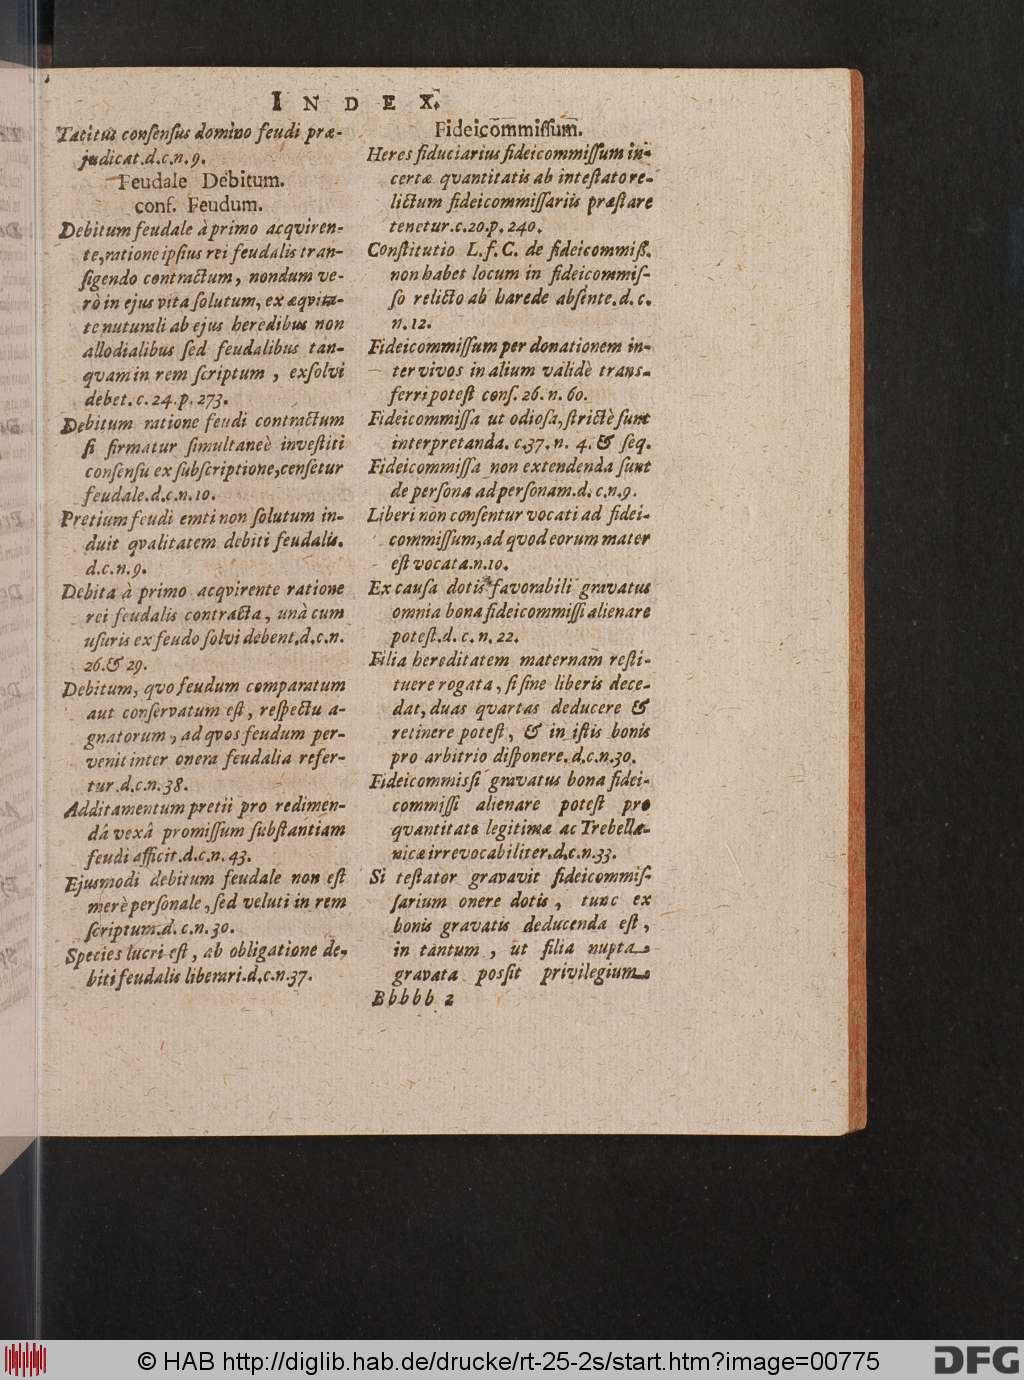 INDEX.
Tacitus consensus domino feudi præ-
judicat.d.c.n.9.
Feudale Debitum.
conf. Feudum.
Debitum feudale à primo acqviren-
te,ratione ipsius rei feudalis tran-
sigendo contractum, nondum ve-
rò in ejus vita solutum, ex æqvita-
te nuturali ab ejus heredibus non
allodialibus sed feudalibus tan-
qvam in rem scriptum, exsolvi
debet. c. 24. p. 273.
Debitum ratione feudi contractum
si firmatur simultaneè investiti
consensu ex subscriptione,censetur
feudale.d.c.n.10.
Pretium feudi emti non solutum in-
duit qvalitatem debiti feudalis.
d.c.n.9.
Debita à primo acqvirente ratione
rei feudalis contracta, unà cum
usuris ex feudo solvi debent.d.c.n.
26.& 29.
Debitum, qvo feudum comparatum
aut conservatum est, respectu a-
gnatorum, ad qvos feudum per-
venit inter onera feudalia refer-
tur.d.c.n.38.
Additamentum pretii pro redimen-
dâ vexâ promissum substantiam
feudi afficit.d.c.n.43.
Ejusmodi debitum feudale non est
merè personale, sed veluti in rem
scriptum.d.c.n.30.
Species lucri est, ab obligatione de-
biti feudalis liberari.d.c.n.37.
Fideicommissum.
Heres fiduciarius fideicommissum in-
certæ quantitatis ab intestato re-
lictum fideicommissariis præstare
tenetur.c.20.p. 240.
Constitutio L.f.C. de fideicommiß.
non habet locum in fideicommis-
so relicto ab hærede absente.d.c.
n.12.
Fideicommissum per donationem in-
ter vivos in alium validè trans-
ferri potest cons. 26. n. 60.
Fideicommissa ut odiosa, strictè sunt
interpretanda. c.37. n. 4. & seq.
Fideicommissa non extendenda sunt
de persona ad personam.d. c.n.9.
Liberi non consentur vocati ad fidei-
commissum, ad quod eorum mater
est vocata.n.10.
Ex causa dotis favorabili gravatus
omnia bona fideicommissi alienare
potest.d. c. n. 22.
Filia hereditatem maternam resti-
tuere rogata, si sine liberis dece-
dat, duas quartas deducere &
retinere potest, & in istis bonis
pro arbitrio disponere.d.c.n.30.
Fideicommissi gravatus bona fidei-
commissi alienare potest pro
qvantitate legitimæ ac Trebellia-
nicæ irrevocabiliter.d.c.n.33.
Si testator gravavit fideicommis-
sarium onere dotis, tunc ex
bonis gravatis deducenda est,
in tantum, ut filia nupta
gravata possit privilegium
Bbbbb 2
© HAB http://diglib.hab.de/drucke/rt-25-2s/start.htm?image=00775
DFG